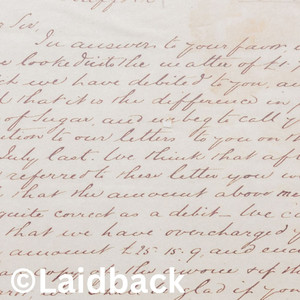 Sir,
In answer to your favor
looked into the matter of £1
we have debited to you, an
that it is the difference in
of Sugar, and we beg to call y
tion to our letter to you on th
July last. We think that aft
referred to these letter you w
that the amount above me
quite correct as a debit. We c
that we have overcharged y
amount £25.15.9, and enc
a copy of the invoice & if th
glad if you
©Laidback